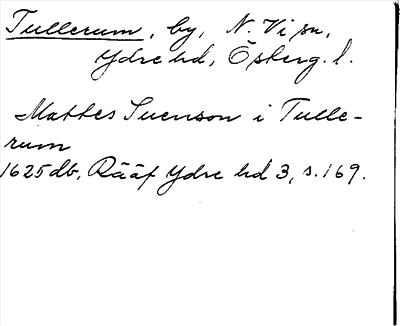 Tullerum, by, N. Vi sn,
Ydre hd, Österg. l.
Mattes Suenson i Tulle-
rum
1625 db, Rääf Ydre hd 3, s. 169.